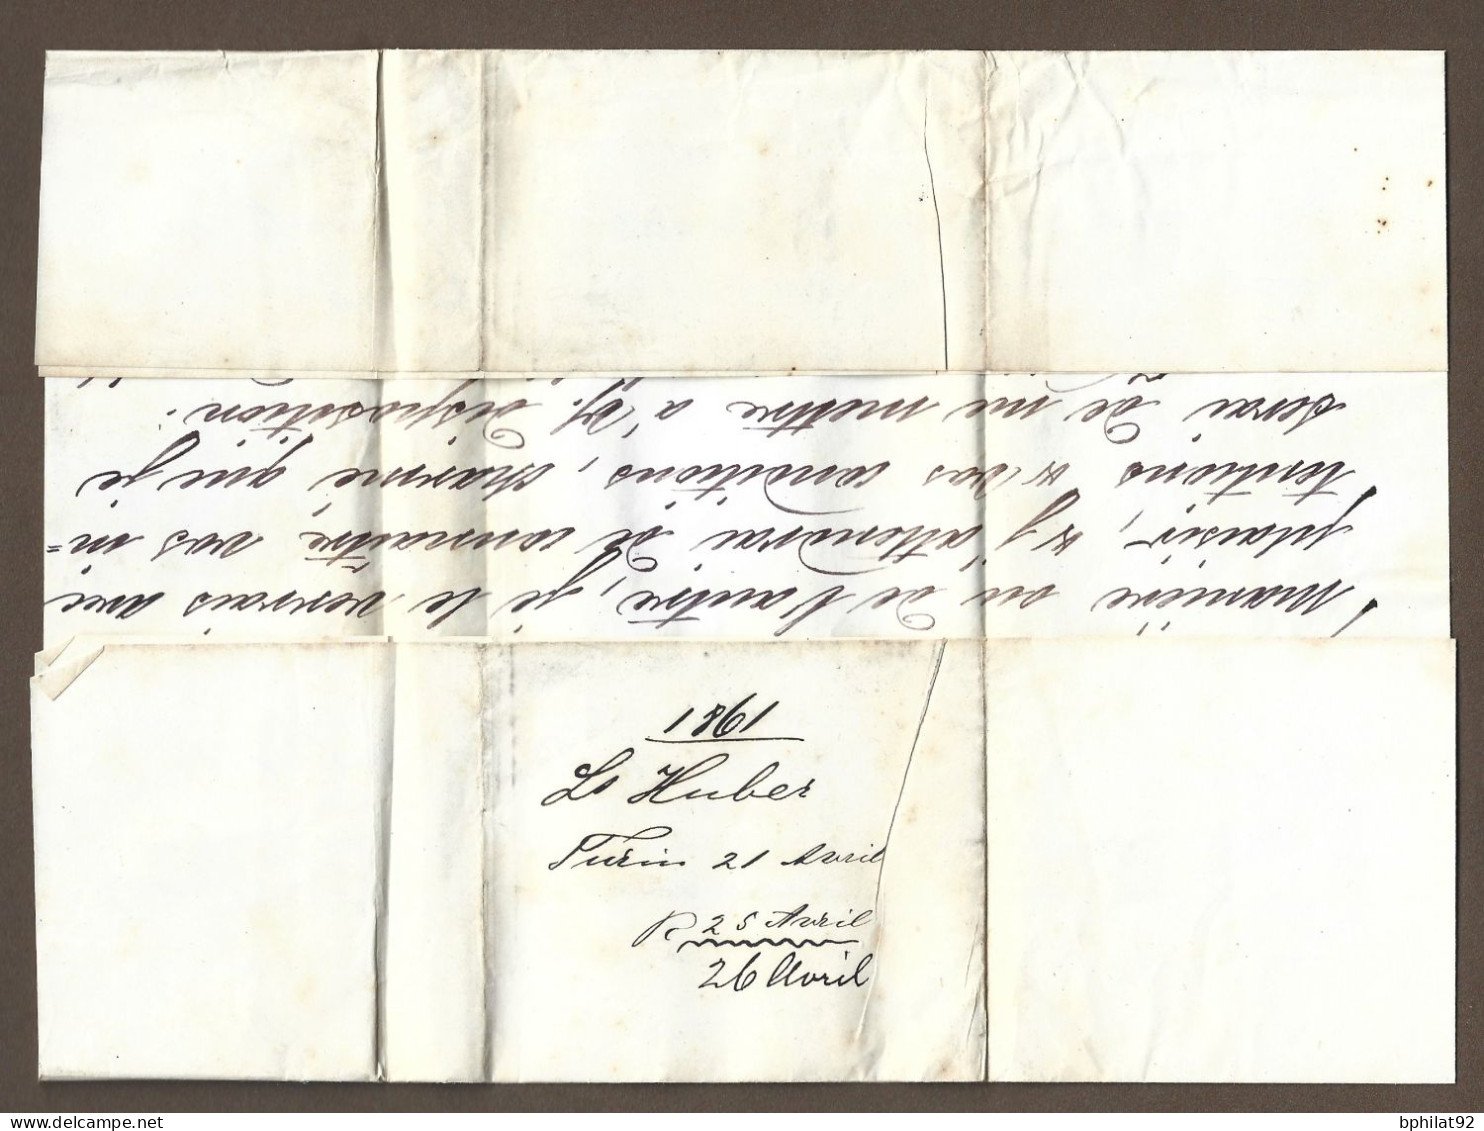 manière ou de l'autre, je le verrais avec
plaisir, & j'attendrai de connaître vos in-
tentions & vos conditions, charmé que je
serai de me mettre à V/. disposition.
1861
Ls Huber
Turin 21 Avril
R 25 Avril
26 Avril
bphilat92